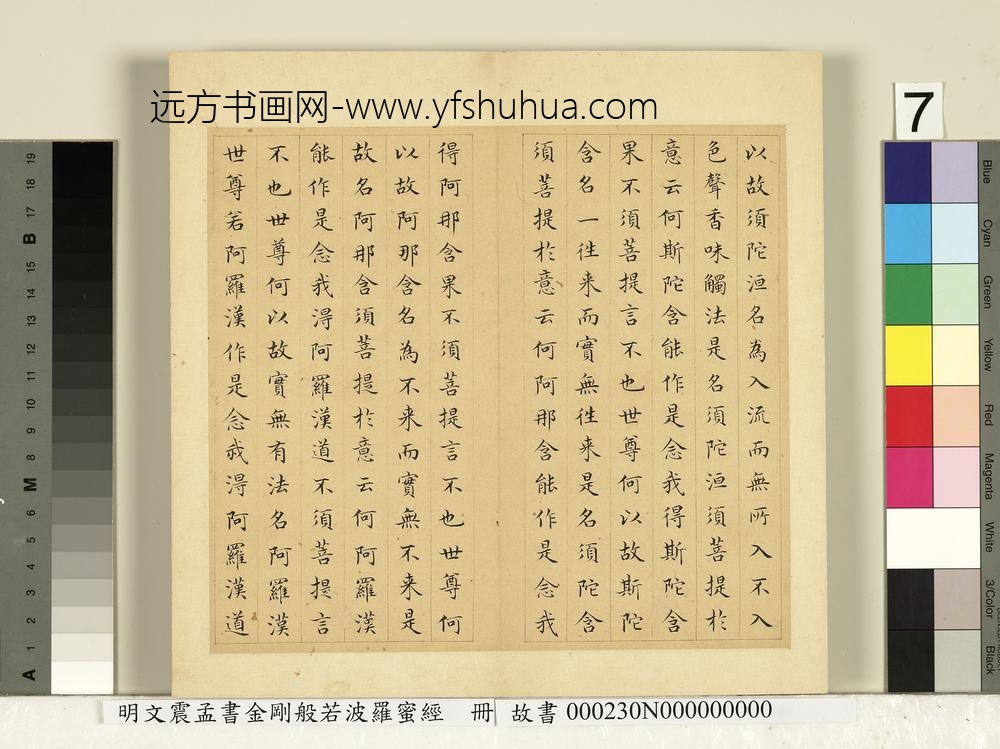 远方书画网-www.yfshuhua.com
7
以故須陀洹名為入流而無所入不入
色聲香味觸法是名須陀洹須菩提於
意云何斯陀含能作是念我得斯陀含
果不須菩提言不也世尊何以故斯陀
含名一徃来而實無徃来是名須陀含
須菩提於意云何阿那含能作是念我
得阿那含果不須菩提言不也世尊何
以故阿那含名為不来而實無不来是
故名阿那含須菩提於意云何阿羅漢
能作是念我淂阿羅漢道不須菩提言
不也世尊何以故實無有法名阿羅漢
世尊若阿羅漢作是念我淂阿羅漢道
A 1 2 3 4 5 6 M 8 9 10 11 12 13 14 15 B 17 18 19
Blue
Cyan
Green
Yellow
Red
Magenta
White
3/Color
Black
明文震孟書金剛般若波羅蜜經 冊 故書 000230N000000000